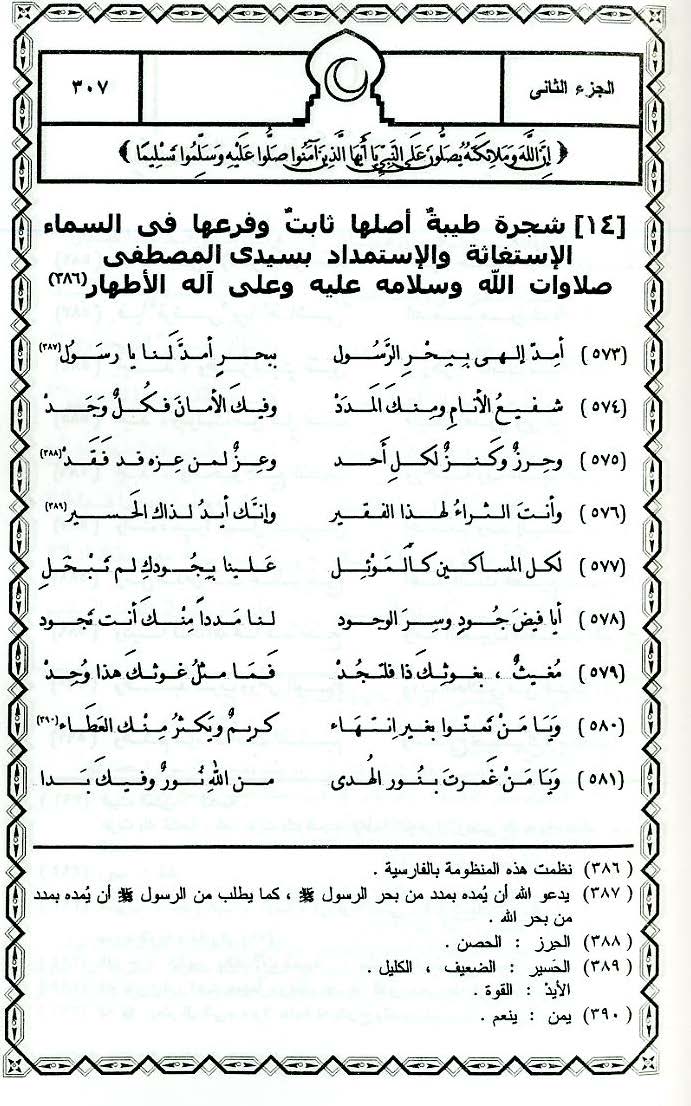 الجزء الثانى
٣٠٧
﴿ إِنَّ اللَّهَ وَمَلَائِكَتَهُ يُصَلُّونَ عَلَى النَّبِيِّ يَا أَيُّهَا الَّذِينَ آمَنُوا صَلُّوا عَلَيْهِ وَسَلِّمُوا تَسْلِيمًا ﴾
[١٤] شجرة طيبةٌ أصلها ثابتٌ وفرعها فى السماء
الإستغاثة والإستمداد بسيدى المصطفى
صلاوات الله وسلامه عليه وعلى آله الأطهار(٣٨٦)
(٥٧٣) أمِدّ إلهى بِبَحْرِ الرَّسُول ببحرٍ أمدَّ لنا يا رسَولُ(٣٨٧)
(٥٧٤) شفيعُ الأنامِ ومنكَ المدَدْ وفيكَ الأمانَ فكلٌ وَجَدْ
(٥٧٥) وحِرزٌ وكنزٌ لكلِ أحد وعِزٌ لمن عِزه قد فقَدْ(٣٨٨)
(٥٧٦) وأنتَ الثراءُ لهذا الفقير وإنَّك أيدُ لذاكَ الحَسير(٣٨٩)
(٥٧٧) لكل المساكين كالمَوْئِل علينا بِجُودكِ لم تَبْخلِ
(٥٧٨) أيا فيضَ جُودٍ وسرَ الوجود لنا مَدداً مِنْكَ أنت تجود
(٥٧٩) مُغيثٌ ، بغوثِكَ ذا فلتَجُدْ فمَا مثلُ غوثكَ هذا وُجِدْ
(٥٨٠) وَيَا مَنْ تمنّوا بغيرِ انتهَاء كريمٌ ويكثرُ مِنْك العَطَاء(٣٩٠)
(٥٨١) وَيَا مَن غَمرتَ بنُور الهُدى من اللهِ نُورٌ وفيكَ بَدا
(٣٨٦) نظمت هذه المنظومة بالفارسية .
(٣٨٧) يدعو الله أن يُمده بمدد من بحر الرسول ﷺ ، كما يطلب من الرسول ﷺ أن يُمده بمدد
من بحر الله .
(٣٨٨) الحرز : الحصن .
(٣٨٩) الحَسير : الضعيف ، الكليل .
الأيدْ : القوة .
(٣٩٠) يمن : ينعم .